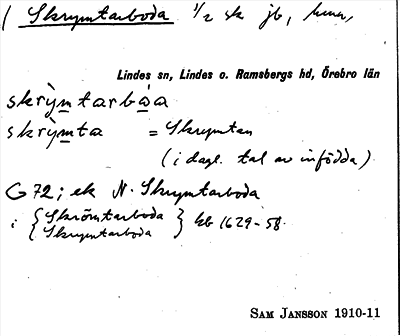 ( Skrymtarboda 1/2 sk jb,
Lindes sn, Lindes o. Ramsbergs hd, Örebro län
skrỳmtarbåa
skrỳmta = Skrymtan
( i dagl. tal av infödda )
G 72; ek N. Skrymtarboda
i { Skrömtarboda } kb 1629-58.
{ Skrymtarboda
SAM JANSSON 1910-11